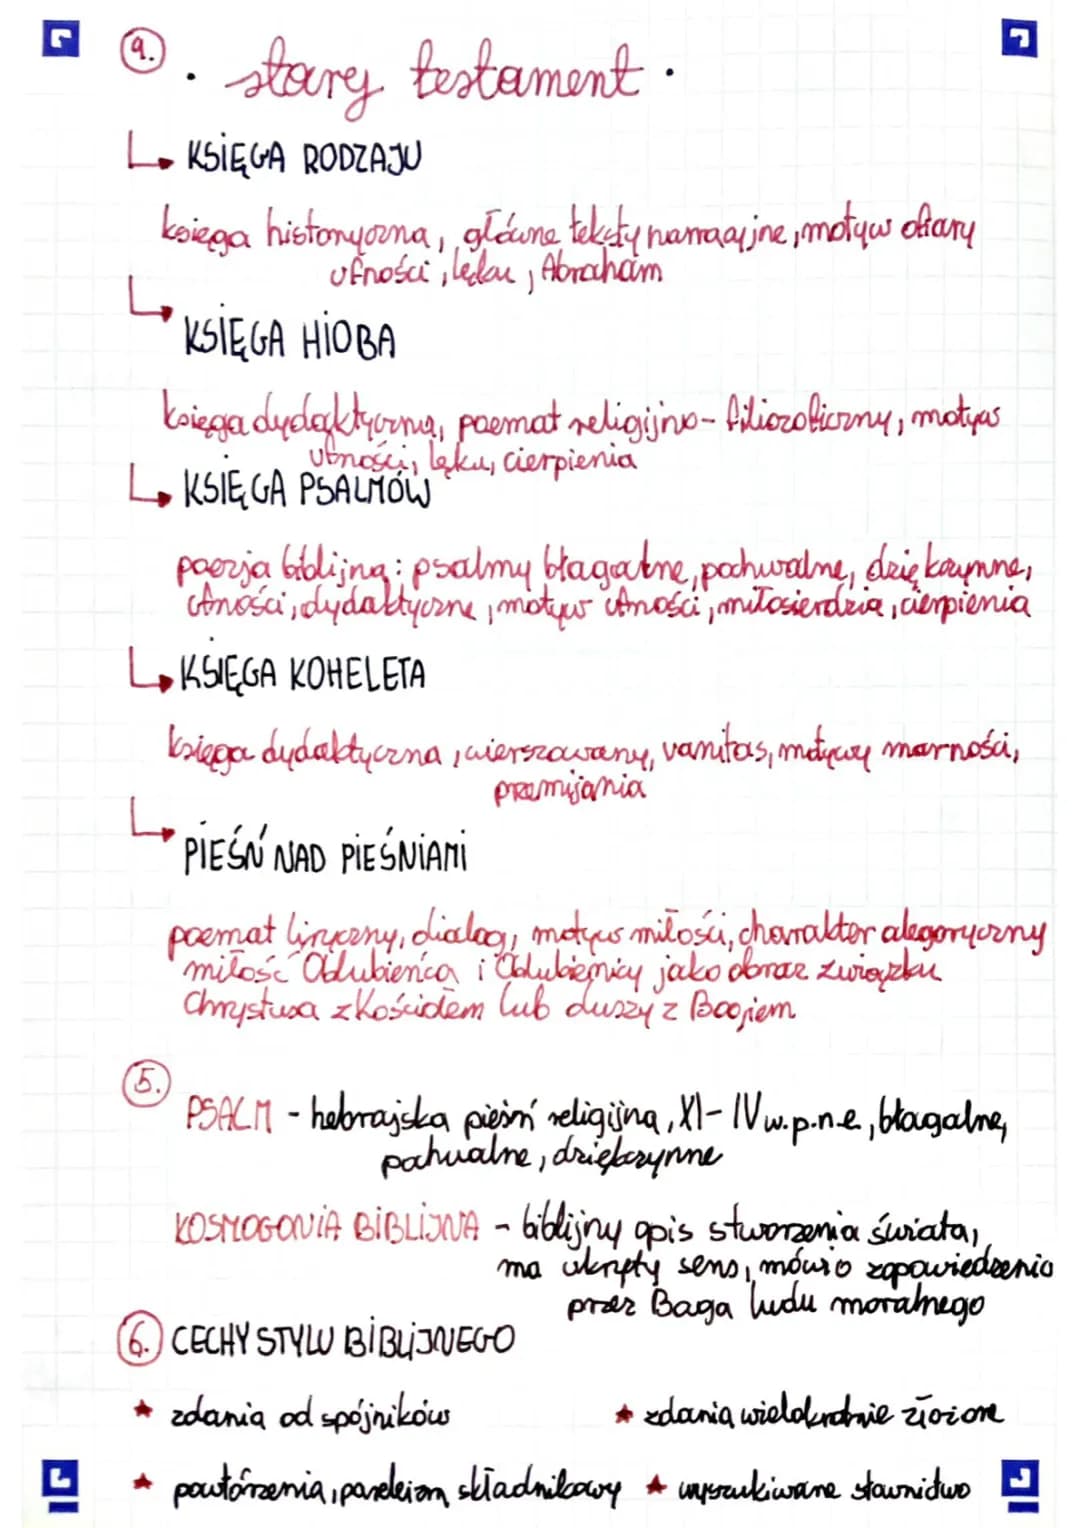 9. · stary testament ·
KSIĘGA RODZAJU
księga historyczna, główne teksty narracyjne, motyw ofiary
ufności, lęku, Abraham
KSIĘGA HIOBA
księga dydaktyczna, poemat religijno-filiozoficzny, motyw
ufności, lęku, cierpienia
KSIĘGA PSALMÓW
poezja biblijna: psalmy błagalne, pochwalne, dziękczynne,
ufności, dydaktyczne, motyw ufności, miłosierdzia, cierpienia
KSIĘGA KOHELETA
księga dydaktyczna, wierszowany, vanitas, motywy marności,
przemijania
PIEŚŃ NAD PIEŚNIAMI
poemat liryczny, dialog, motyw miłości, charakter alegoryczny
miłość Oblubieńca i Oblubienicy jako obraz związku
Chrystusa z Kościołem lub duszy z Bogiem
5.
PSALM - hebrajska pieśń religijna, XI-IV w.p.n.e, błagalne,
pochwalne, dziękczynne
KOSMOGONIA BIBLIJNA - biblijny opis stworzenia świata,
ma ukryty sens, mówi o zapowiedzeniu
przez Boga ludu moralnego
6. CECHY STYLU BIBLIJNEGO
★ zdania od spójników ★ zdania wielokrotnie złożone
★ powtórzenia, składnikowy ★ wyszukiwane słownictwo